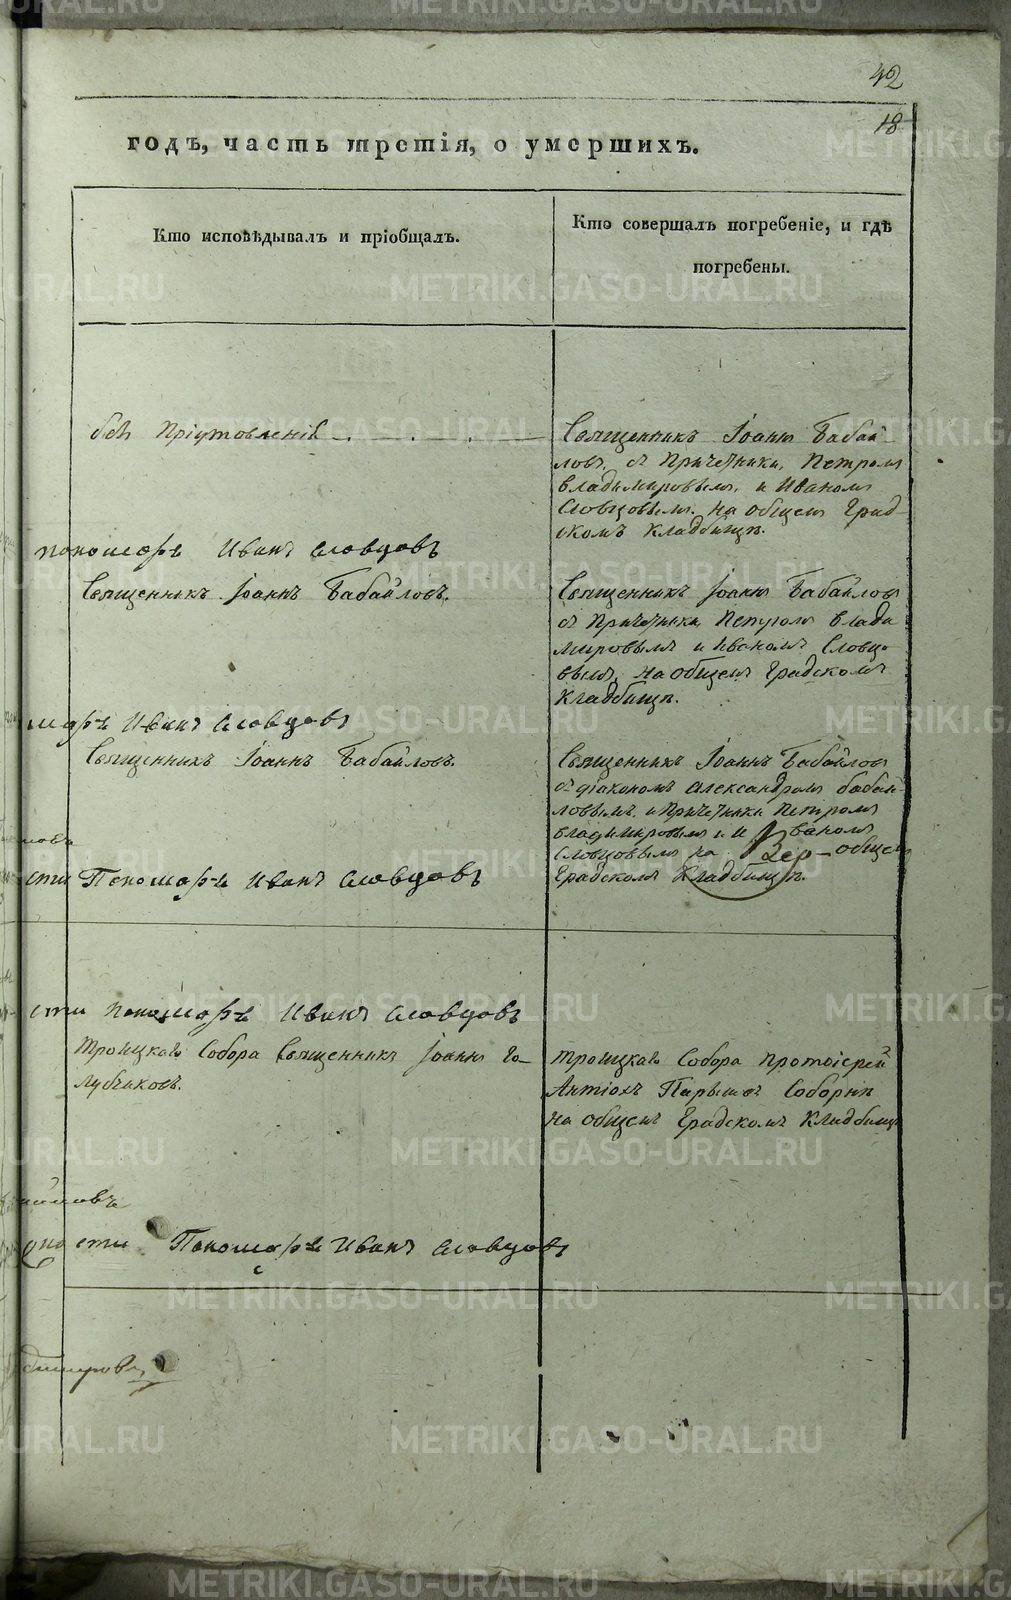 42
18
годъ, часть третія, о умершихъ.
Кто исповѣдывалъ и пріобщалъ.
Кто совершалъ погребеніе, и гдѣ
погребены.
безъ пріуготовленія
Священникъ Іоаннъ Бабай-
ловъ, съ причетники, Петромъ
Владимировымъ, и Иваномъ
Словцовымъ. на общемъ град-
скомъ кладбищѣ.
пономарь Иванъ Словцовъ
Священникъ Іоаннъ Бабайловъ.
Священникъ Іоаннъ Бабайловъ
съ причетники Петромъ Влади
мировымъ и Иваномъ Словцо-
вымъ, на общемъ градскомъ
кладбищѣ.
марь Иванъ Словцовъ
Священникъ Іоаннъ Бабайловъ.
Священникъ Іоаннъ Бабайловъ
съ діакономъ Александромъ Бабай-
ловымъ, и причетники Петромъ
Владимировымъ и Иваномъ
Словцовымъ на общемъ
градскомъ кладбищѣ.
сти Пономарь Иванъ Словцовъ
сти пономарь Иванъ Словцовъ
Троицкаго Собора Священникъ Іоаннъ Го-
лубчиковъ.
Троицкаго Собора протоіерей
Антіохъ Парышевъ Соборнѣ
на общемъ градскомъ кладбищѣ
сти Пономарь Иванъ Словцовъ
METRIKI.GASO-URAL.RU